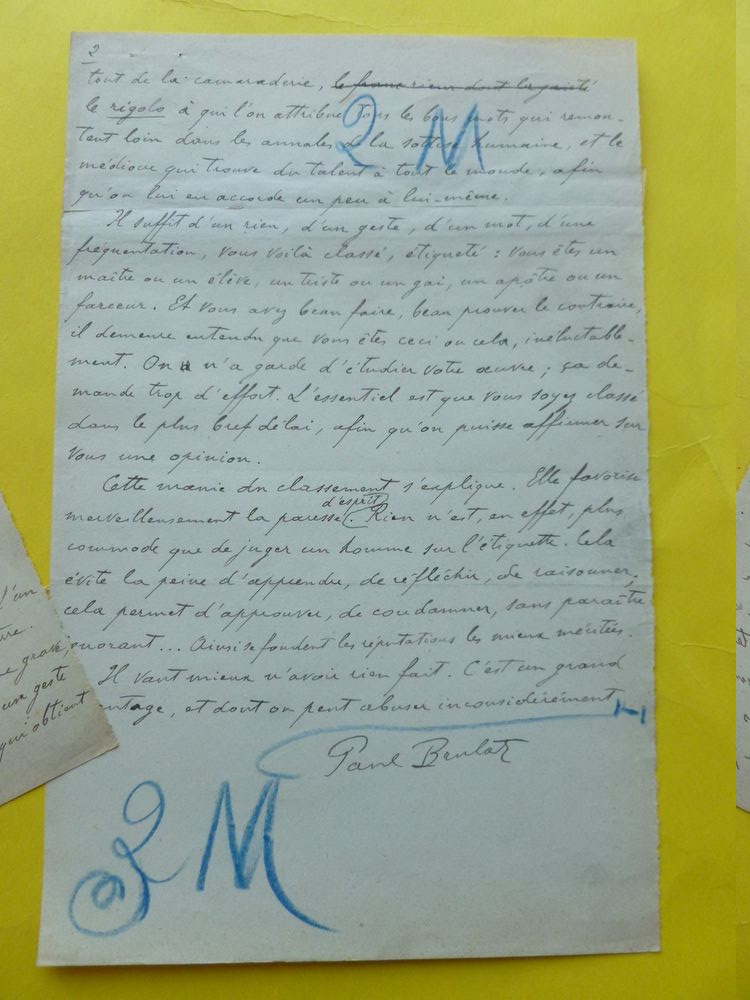 2
tout de la camaraderie, le franc rieur dont la gaieté
le rigolo à qui l'on attribue tous les bons mots qui remon-
tent loin dans les annales de la sottise humaine, et le
médiocre qui trouve du talent à tout le monde, afin
qu'on lui en accorde un peu à lui-même.
2 M
Il suffit d'un rien, d'un geste, d'un mot, d'une
fréquentation, vous voilà classé, étiqueté : vous êtes un
maître ou un élève, un triste ou un gai, un apôtre ou un
farceur. Et vous avez beau faire, beau prouver le contraire,
il demeure entendu que vous êtes ceci ou cela, inéluctable-
ment. On n'a garde d'étudier votre œuvre ; ça de-
mande trop d'effort. L'essentiel est que vous soyez classé
dans le plus bref délai, afin qu'on puisse affirmer sur
vous une opinion.
Cette manie du classement s'explique. Elle favorise
d'esprit
merveilleusement la paresse. Rien n'est, en effet, plus
commode que de juger un homme sur l'étiquette. Cela
évite la peine d'apprendre, de réfléchir, de raisonner ;
cela permet d'approuver, de condamner, sans paraître
ignorant... Ainsi se fondent les réputations les mieux méritées.
Il vaut mieux n'avoir rien fait. C'est un grand
antage, et dont on peut abuser inconsidérément.
Paul Brulat
2 M
l'un
grave,
un geste
qui obtient